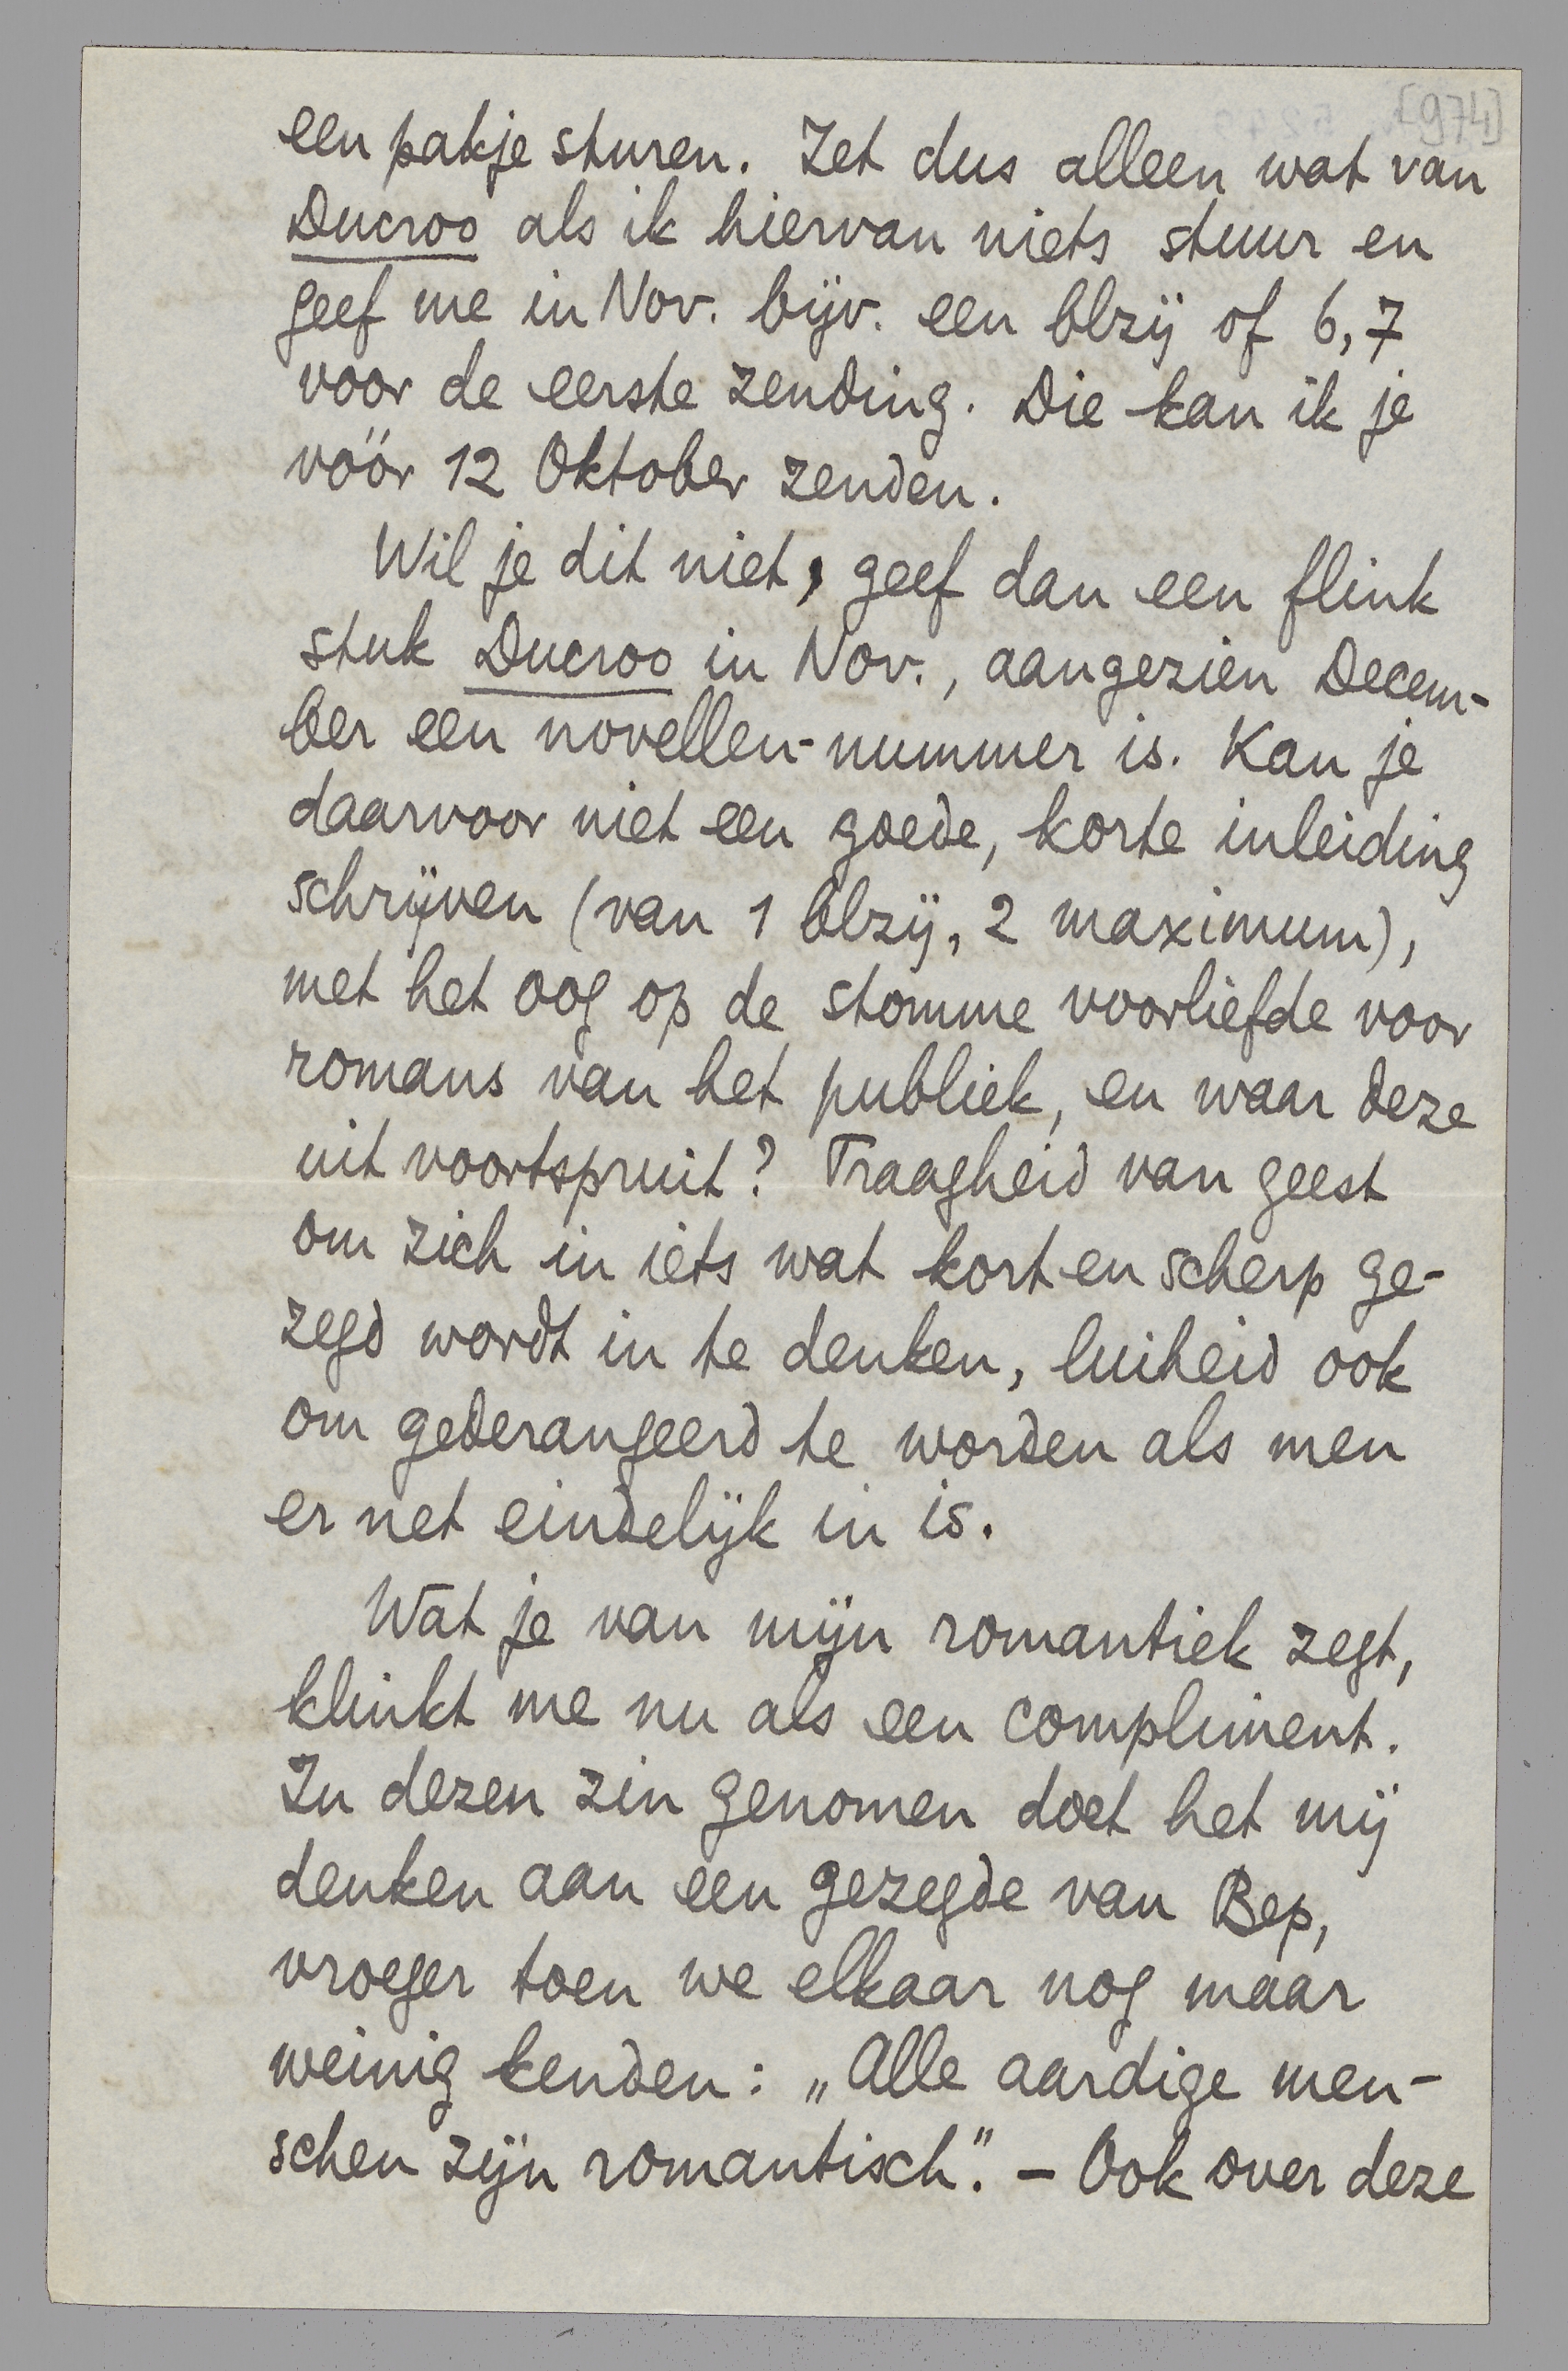 [974]
een pakje sturen. Zet dus alleen wat van
Ducroo als ik hiervan niets stuur en
geef me in Nov. bijv. een blzij of 6, 7
voor de eerste zending. Die kan ik je
vóór 12 Oktober zenden.
Wil je dit niet, geef dan een flink
stuk Ducroo in Nov., aangezien Decem-
ber een novellen-nummer is. Kan je
daarvoor niet een goede, korte inleiding
schrijven (van 1 blzij, 2 maximum),
met het oog op de stomme voorliefde voor
romans van het publiek, en waar deze
uit voortspruit? Traagheid van geest
om zich in iets wat kort en scherp ge-
zegd wordt in te denken, luiheid ook
om gederangeerd te worden als men
er net eindelijk in is.
Wat je van mijn romantiek zegt,
klinkt me nu als een compliment.
In dezen zin genomen doet het mij
denken aan een gezegde van Bep,
vroeger toen we elkaar nog maar
weinig kenden: „Alle aardige men-
schen zijn romantisch." - Ook over deze